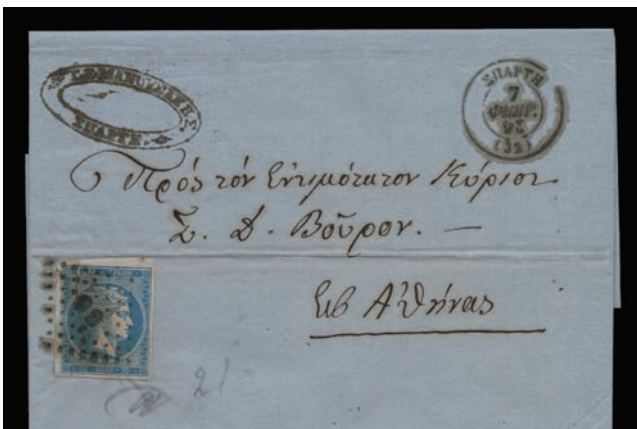 ΣΠΑΡΤΗ
ΣΠΑΡΤΗ
7
ΦΕΒΡ.
(32)
Πρὸς τὸν Ἐντιμότατον Κύριον
Σ. Δ. Βοῦρον. —
Εἰς Ἀθήνας
2